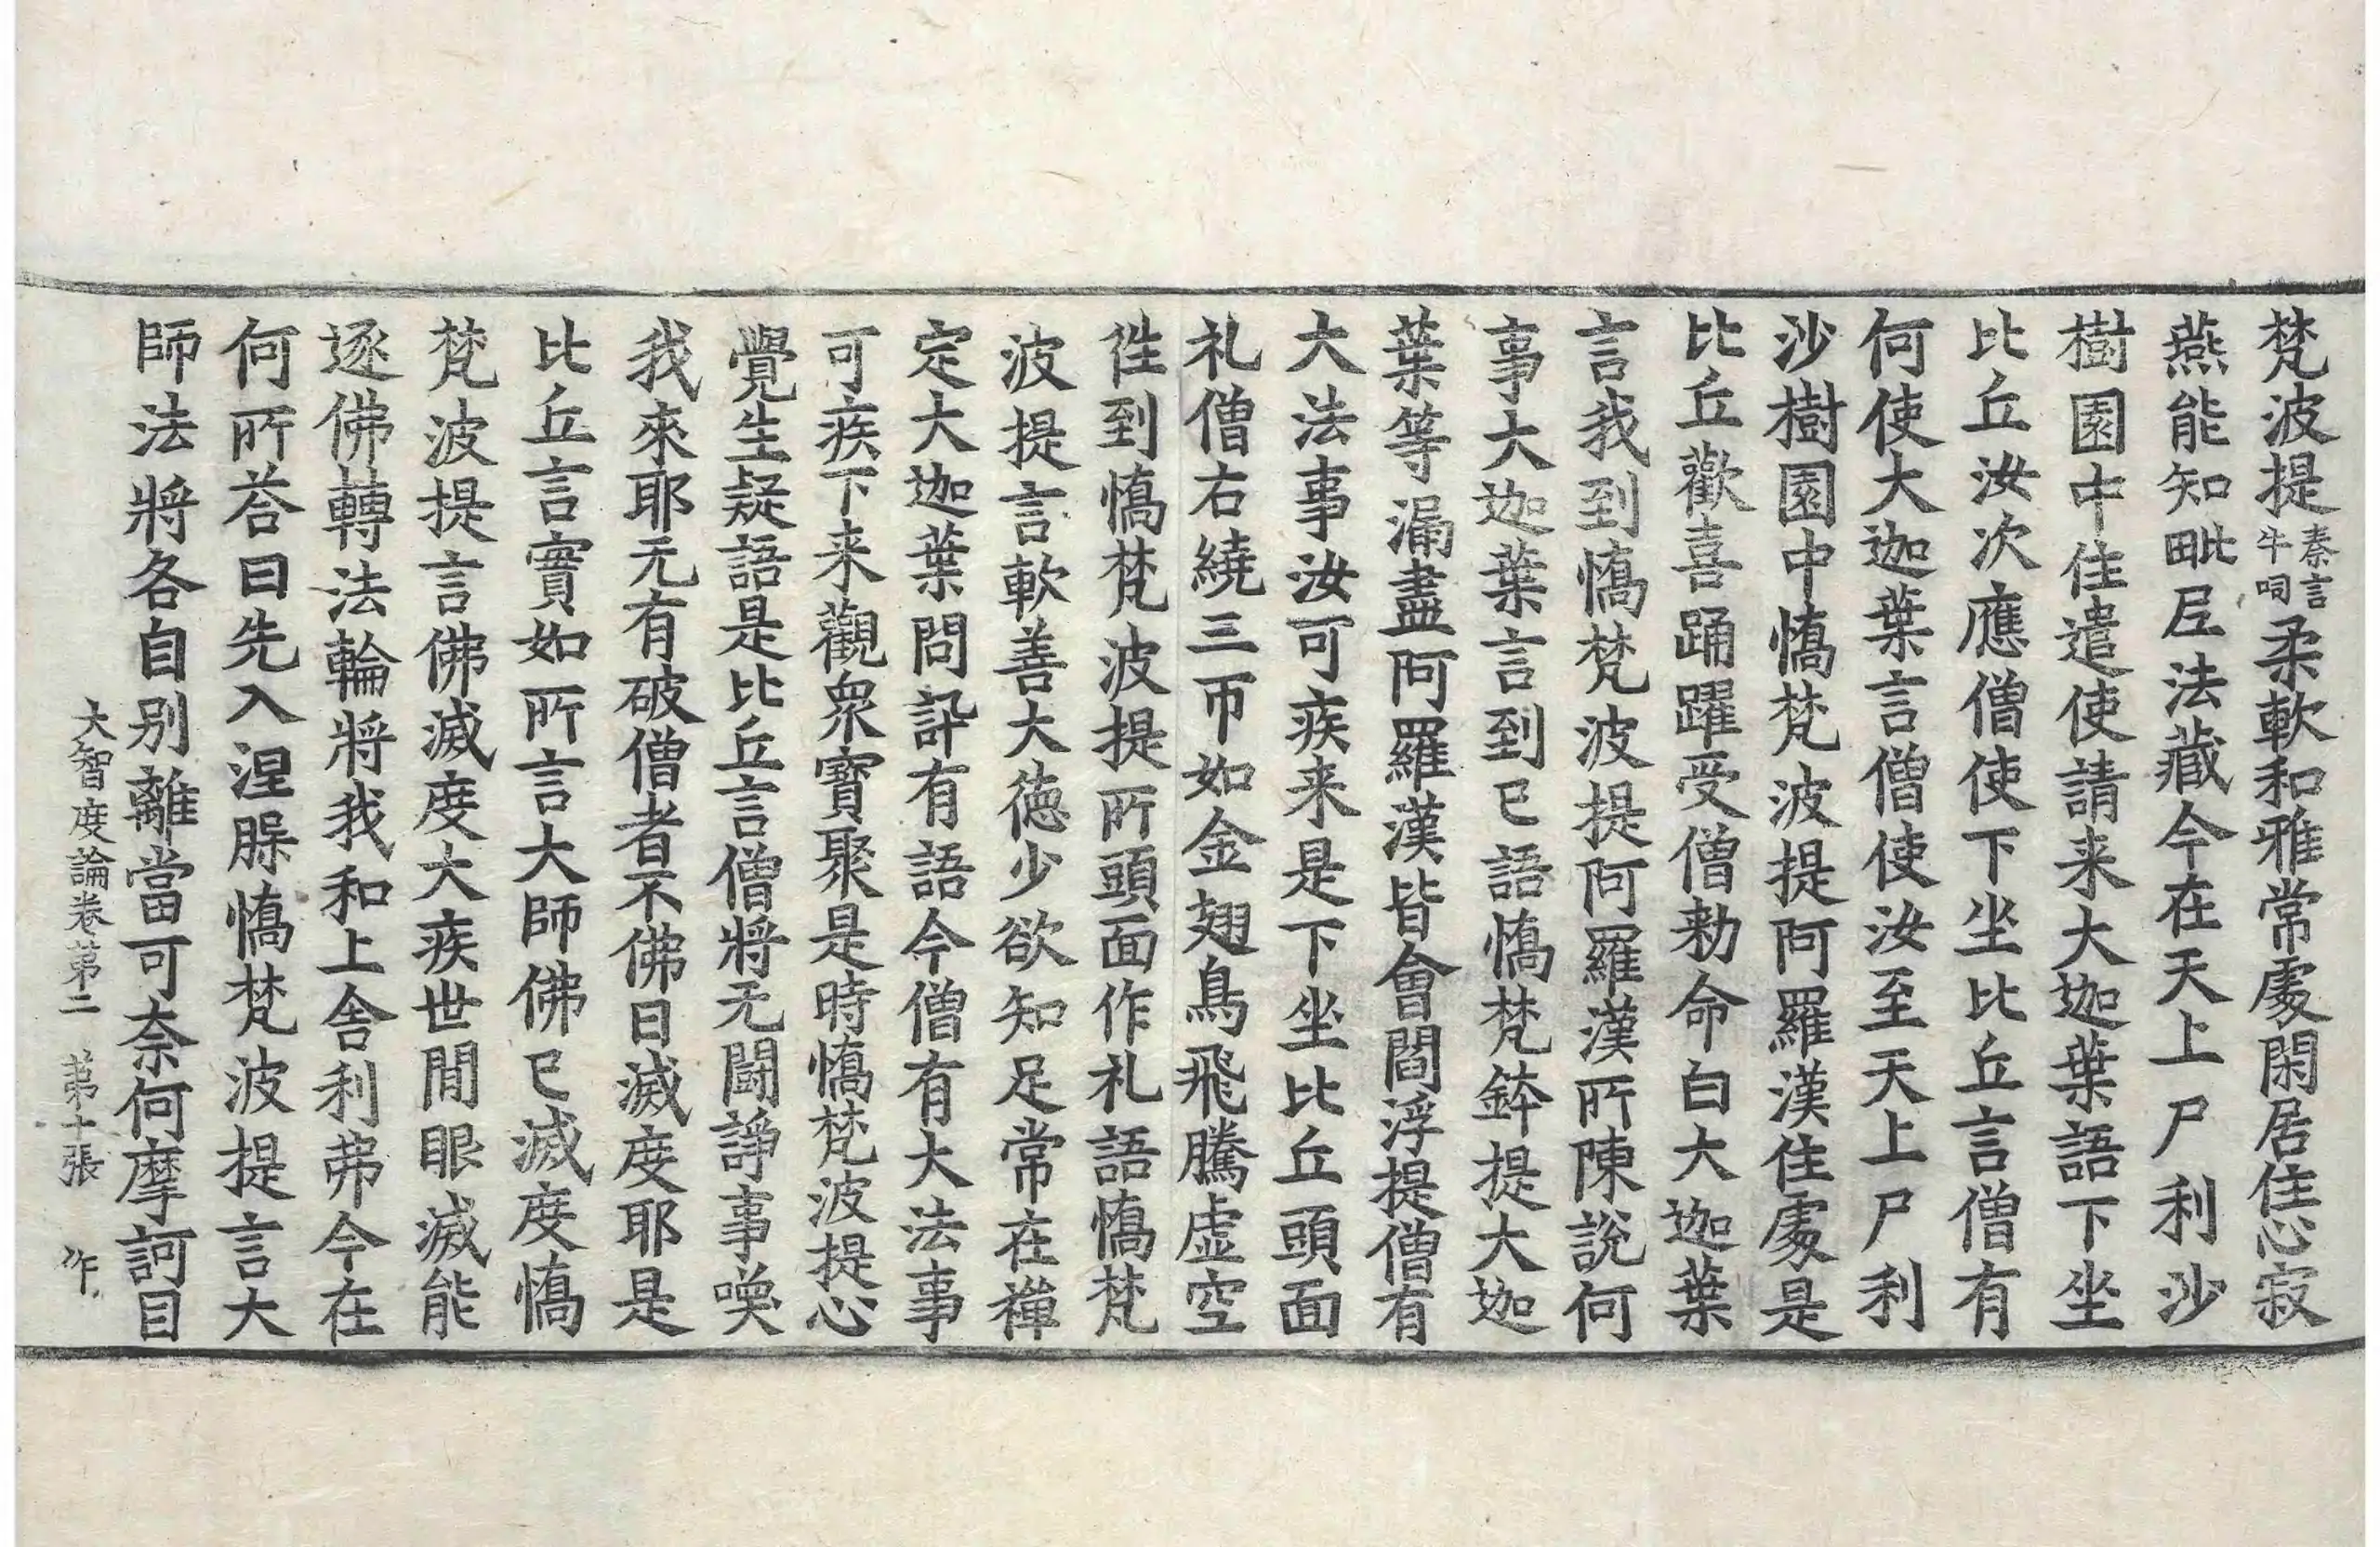 梵波提秦言牛呞柔軟和雅常處閑居住心寂
燕能知毗尼法藏今在天上尸利沙
樹園中住遣使請来大迦葉語下坐
比丘汝次應僧使下坐比丘言僧有
何使大迦葉言僧使汝至天上尸利
沙樹園中憍梵波提阿羅漢住處是
比丘歡喜踊躍受僧勅命白大迦葉
言我到憍梵波提阿羅漢所陳說何
事大迦葉言到已語憍梵鉢提大迦
葉等漏盡阿羅漢皆會閻浮提僧有
大法事汝可疾来是下坐比丘頭面
礼僧右繞三帀如金翅鳥飛騰虛空
徃到憍梵波提所頭面作礼語憍梵
波提言軟善大德少欲知足常在禪
定大迦葉問訊有語今僧有大法事
可疾下来觀衆寶聚是時憍梵波提心
覺生疑語是比丘言僧將无鬪諍事喚
我來耶无有破僧者不佛日滅度耶是
比丘言實如所言大師佛已滅度憍
梵波提言佛滅度大疾世閒眼滅能
逐佛轉法輪將我和上舍利弗今在
何所荅曰先入涅槃憍梵波提言大
師法將各自别離當可奈何摩訶目
大智度論卷第二 第十張 作